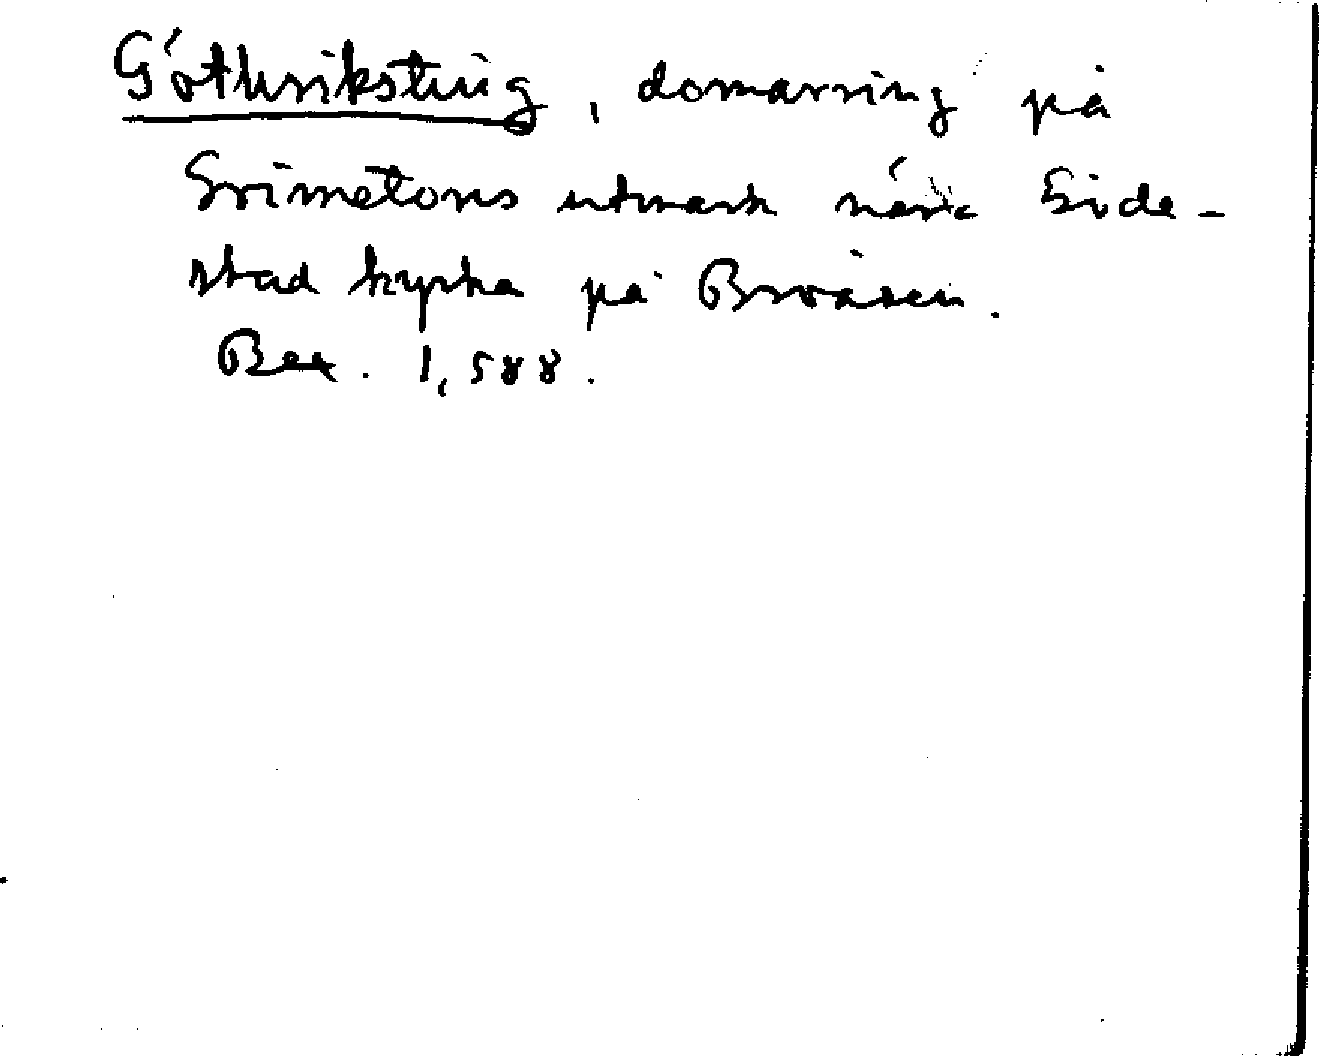 Göthriksting, domarring på
Grimetons utmark nära Gödestad
kyrka på Broåsen.
Bex. 1,588.